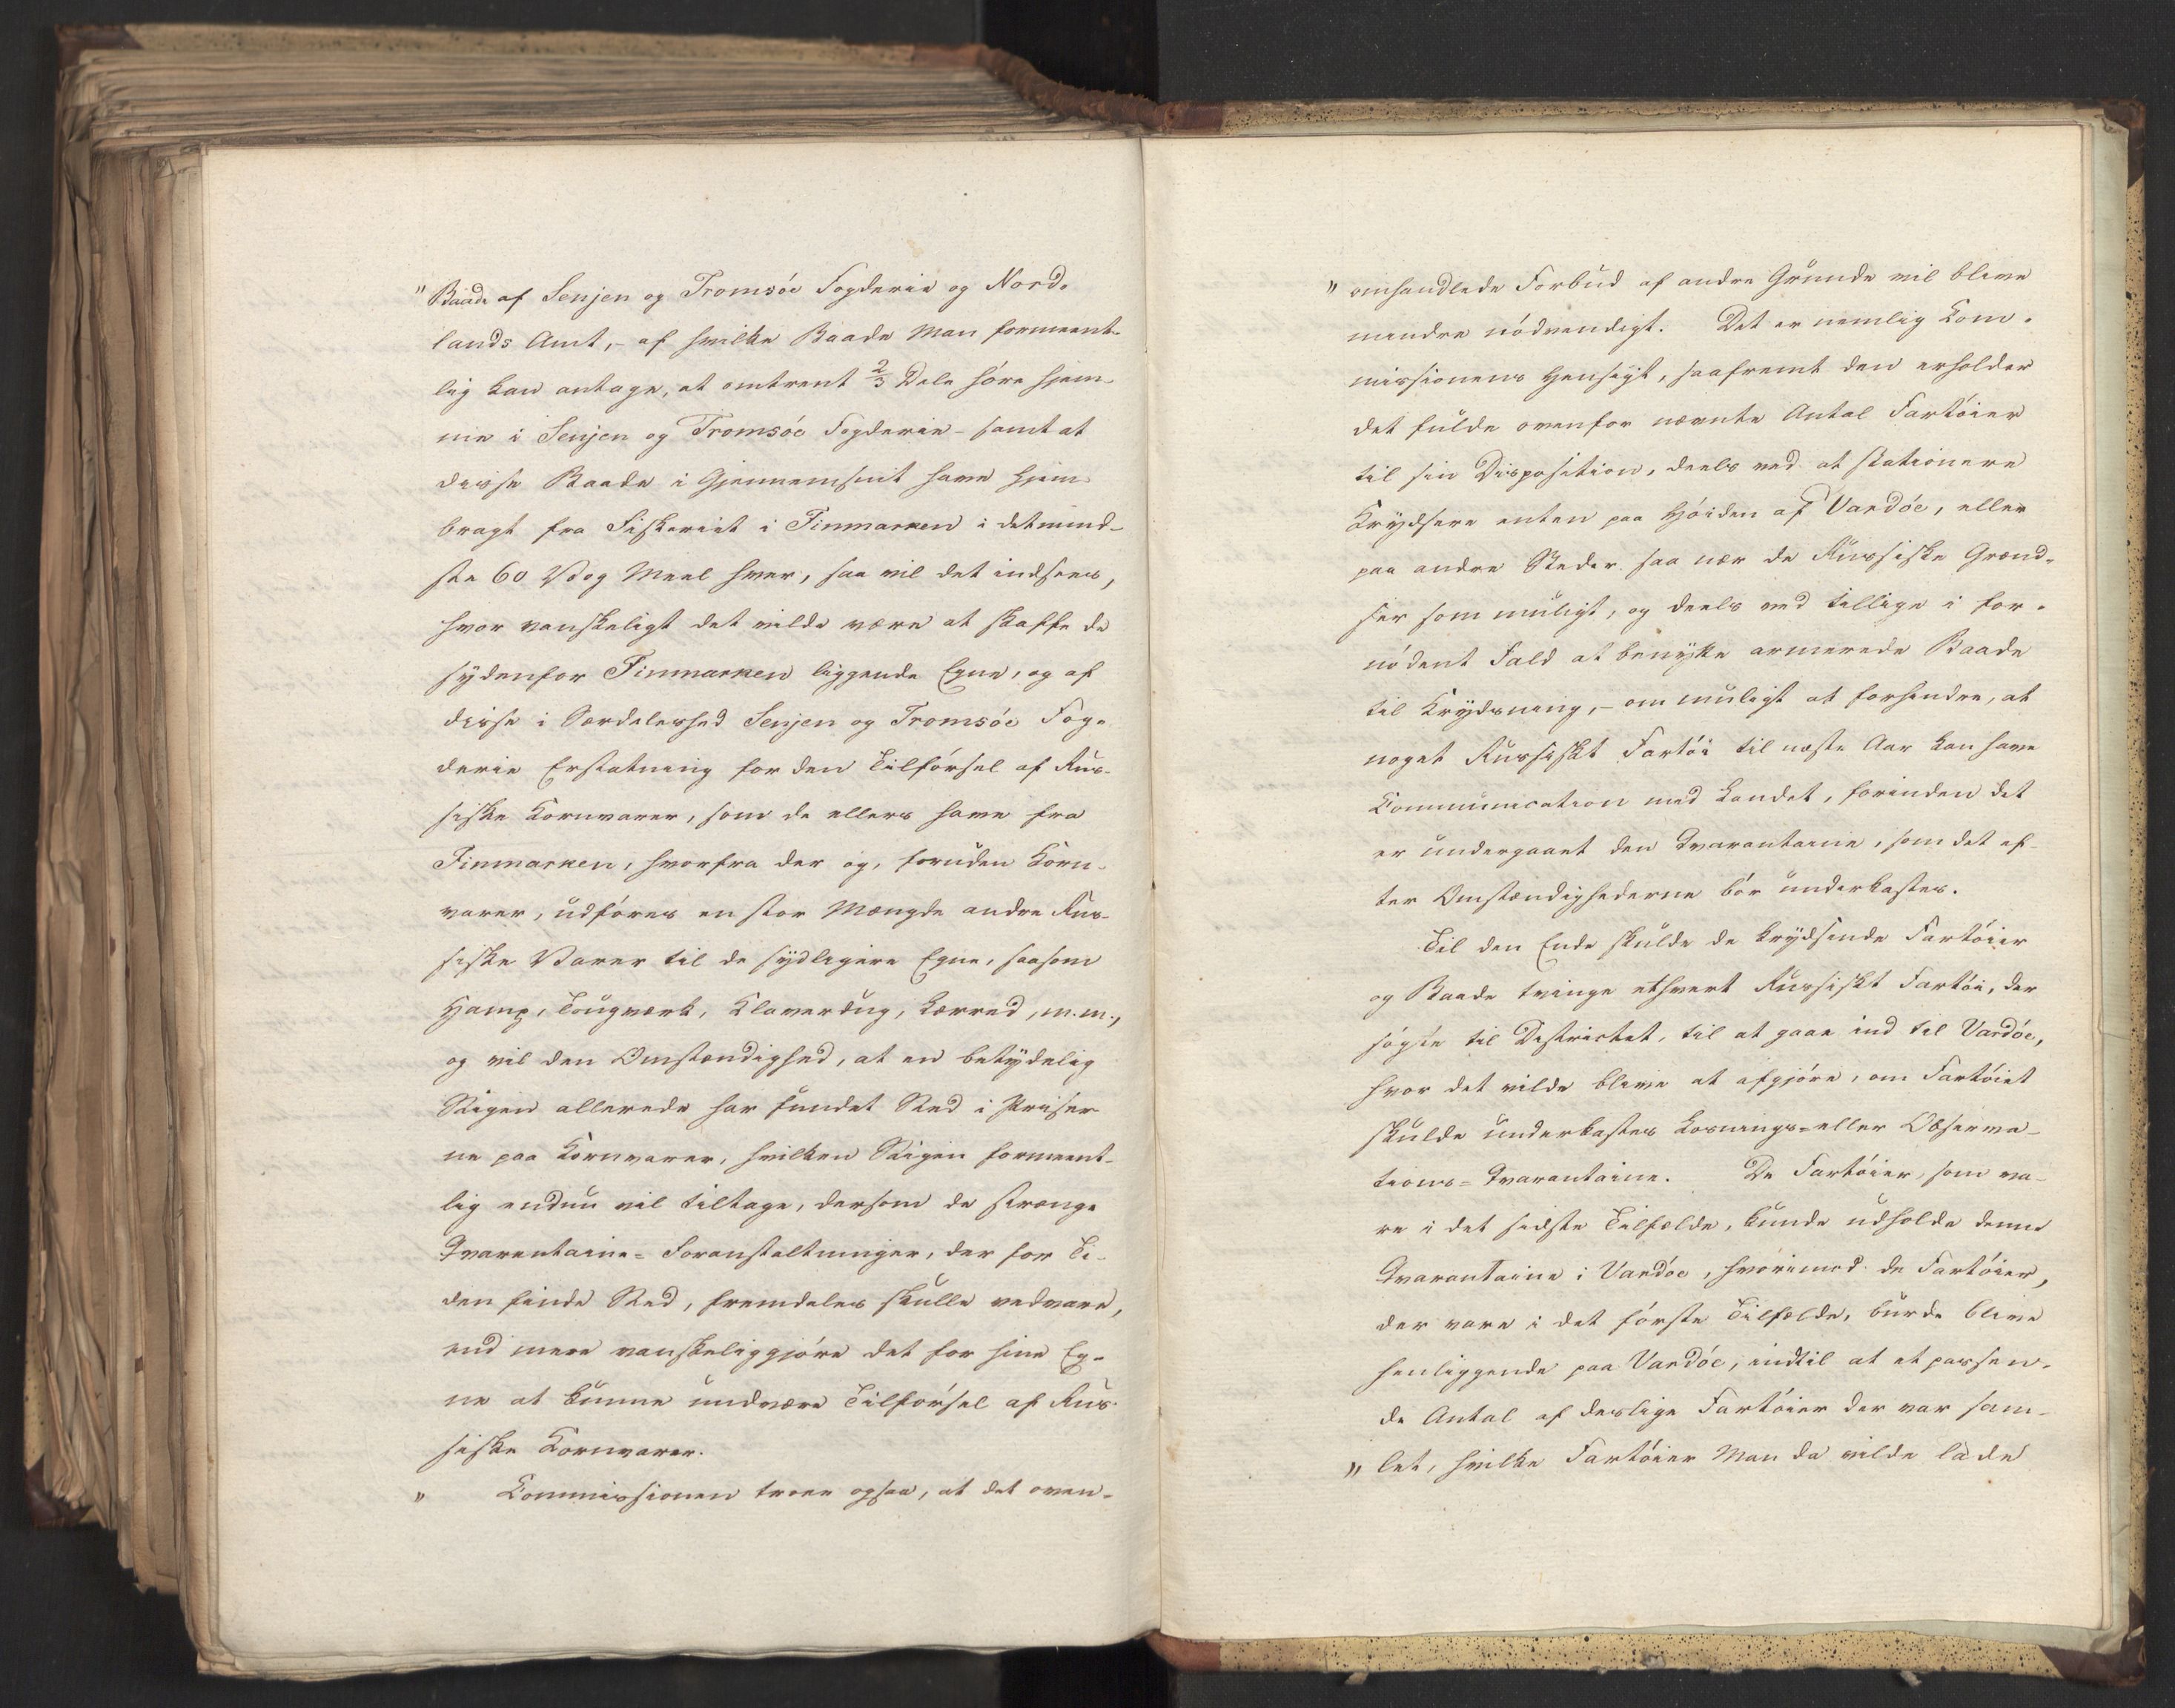 " Baade af Senjen og Tromsöe Fogderie og Nord-
lands Amt, - af hvilke Baade Man formeent-
lig kan antage, at omtrent 2/3 Dele höre hjem-
me i Senjen og Tromsöe Fogderie - samt at
disse Baade i Gjennemsnit have hjem-
bragt fra Fiskeriet i Finmarken i detmind-
ste 60 Vog Meel hver, saa vil det indsees,
hvor vanskeligt det vilde være at skaffe de
sydenfor Finmarken liggende Egne, og af
disse i Særdeleshed Senjen og Tromsöe Fog-
derie Erstatning for den Tilförsel af Rus-
siske Kornvarer, som de ellers have fra
Finmarken, hvorfra der og, foruden Korn-
varer, udföres en stor Mængde andre Rus-
siske Varer til de sydligere Egne, saasom
Hamp, Tougværk, Klaverdug, Lærred, m.m.,
og vil den Omstændighed, at en betydelig
Stigen allerede har fundet Sted i Priser-
ne paa Kornvarer, hvilken Stigen formeent-
lig endnu vil tiltage, dersom de strænge
Qvarentaine-Foranstaltninger, der for Ti-
den finde Sted, fremdeles skulle vedvare,
end mere vanskeliggjöre det for hine Eg-
ne at kunne undvære Tilförsel af Rus-
siske Kornvarer.
" Commissionen troer ogsaa, at det oven-
" omhandlede Forbud af andre Grunde vil blive
mindre nödvendigt. Det er nemlig Com-
missionens Hensigt, saafremt den erholder
det fulde ovenfor nævnte Antal Fartöier
til sin Disposition, deels ved at stationere
Krydsere enten paa Höiden af Vardöe, eller
paa andre Steder saa nær de Russiske Grænd-
ser som muligt, og deels ved tillige i for-
nödent Fald at benytte armerede Baade
til Krydsning, - om muligt at forhindre, at
noget Russiskt Fartöi til næste Aar kan have
Communication med Landet, forinden det
er undergaaet den Qvarantaine, som det ef-
ter Omstændighederne bör underkastes.
Til den Ende skulde de krydsende Fartöier
og Baade tvinge ethvert Russiskt Fartöi, der
sögte til Districtet, til at gaae ind til Vardöe,
hvor det vilde blive at afgjöre, om Fartöiet
skulde underkastes Losnings- eller Observa-
tions-Qvarantaine. De Fartöier, som va-
re i det sidste Tilfælde, kunde udholde denne
Qvarantaine i Vardöe, hvorimod de Fartöier,
der vare i det förste Tilfælde, burde blive
henliggende paa Vardöe, indtil at et passen-
de Antal af deslige Fartöier der var sam-
" let, hvilke Fartöier Man da vilde lade